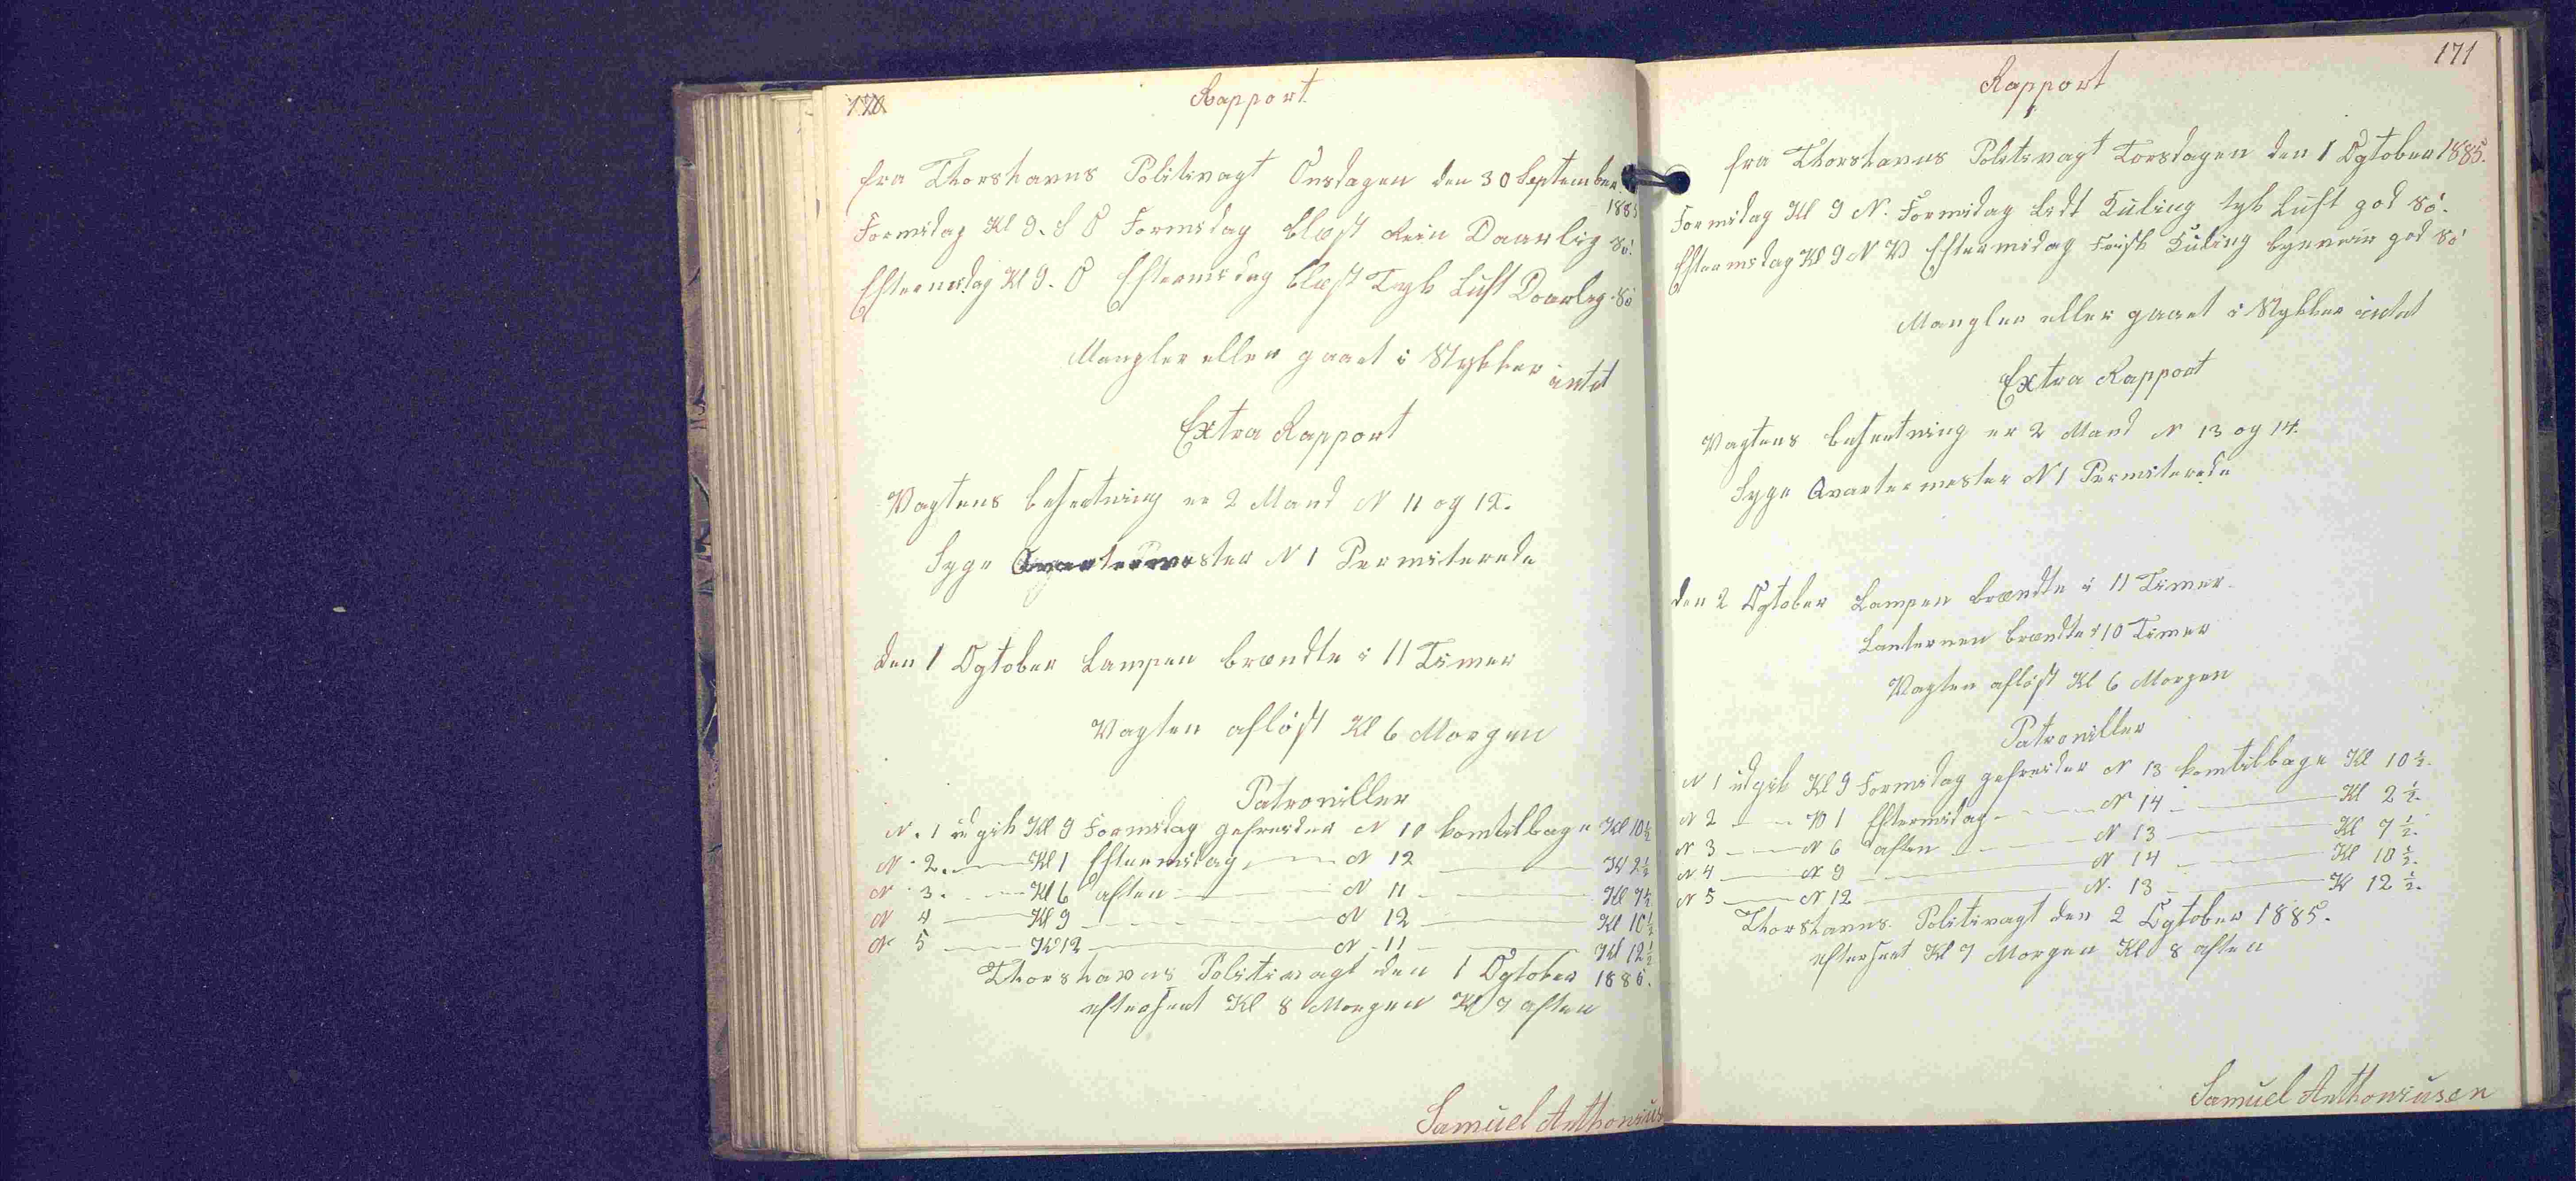 170
Rapport.
fra Thorshavns Politivagt Onsdagen den 30 September
1885
Formidag Kl 9. S O Formidag blæst Rein Daarlig Sö.
Eftermidag Kl 9. O Eftermidag blæst Tyk Luft Daarlig Sö
Mangler eller gaaet i Stykker intet
Extra Rapport
Vagtens besætning er 2 Mand N 11 og 12.
Syge Qvartermester N 1 Permiterede
den 1 Ogtober Lampen brændte i 11 Timer
Vagten aflöst Kl 6 Morgen
Patroniller
N. 1 udgik Kl 9 Formidag gefreider N 10 komtilbage Kl 10½
N. 2. Kl 1 Eftermidag N 12 Kl 2½
N 3. Kl 6 aften N 11 Kl 7½
N 4 Kl 9 N 12 Kl 10½
N 5 Kl 12 N 11 Kl 12½
Thorshavns Politivagt den 1 Ogtober 1885.
efterseet Kl 8 Morgen Kl 7 aften
Samuel Anthonius
171
Rapport
fra Thorshavns Politivagt Torsdagen den 1 Ogtober 1885.
Formidag Kl 9 N. Formidag Lidt Kuling tyk Luft god Sö.
Eftermidag Kl 9 N V Eftermidag Frisk Kuling byeveir god Sö
Mangler eller gaaet i Stykker intet
Extra Rapport
Vagtens besætning er 2 Mand N 13 og 14.
Syge Qvartermester N 1 Permiterede
den 2 Ogtober Lampen brændte i 11 Timer.
Lanternen brændte i 10 Timer
Vagten aflöst Kl 6 Morgen
Patroniller
N 1 udgik Kl 9 Formidag gefreider N 13 komtilbage Kl 10½.
N 2 Kl 1 Eftermidag N 14 Kl 2½.
N 3 N 6 aften N 13 Kl 7½.
N 4 N 9 N 14 Kl 10½.
N 5 N 12 N. 13 Kl 12½.
Thorshavns Politivagt den 2 Ogtober 1885.
efterseet Kl 7 Morgen Kl 8 aften
Samuel Anthoniusen